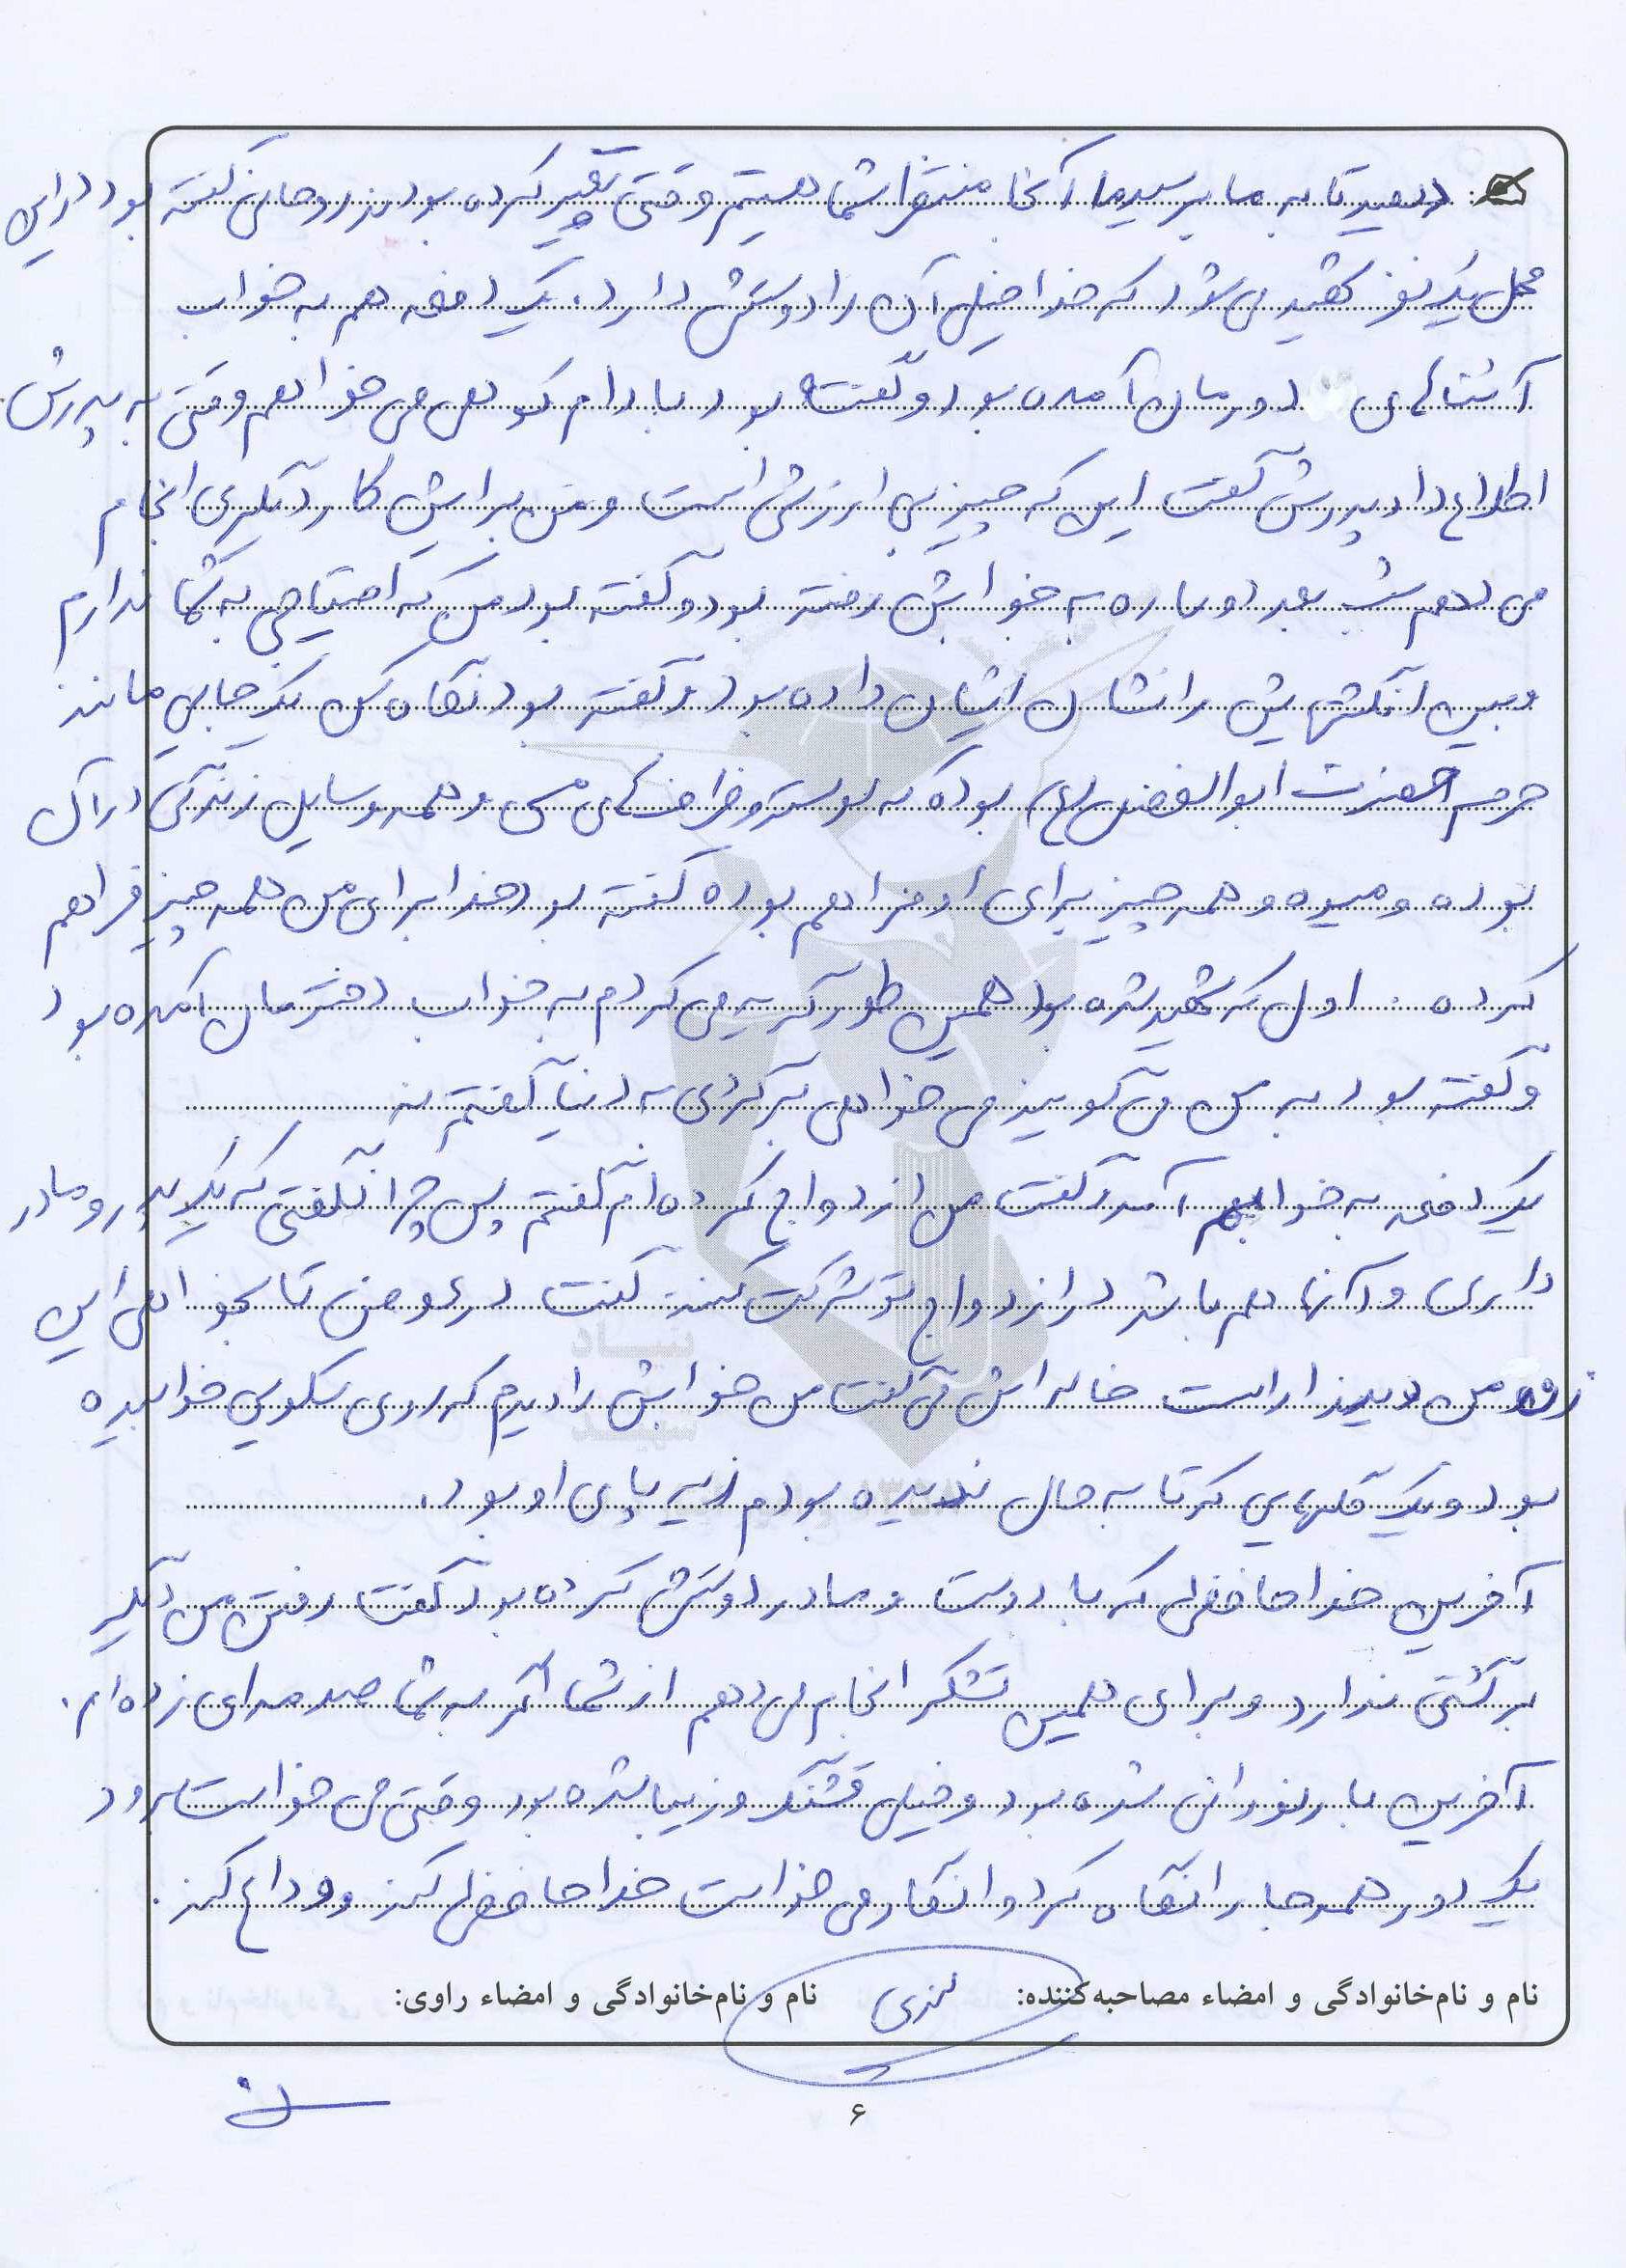 دهید تا به ما برسید ما آنجا منتظر شما هستیم وقتی تعبیر کرده بودند روحانی گفته بود در این
محل یک نفر شهید می شود که خدا خیلی آن را دوستش دارد. یک دفعه هم به خواب
آشناهای دورمان آمده بود و گفته بود بادام کوهی می خواهم وقتی به پدرش
اطلاع داد پدرش گفت این که چیز بی ارزشی است و من برایش کار دیگری انجام
می دهم شب بعد دوباره به خوابش رفته بود و گفته بود من که احتیاجی به شما ندارم
و بین انگشتهایش را نشان ایشان داده بود و گفته بود نگاه کن یک جایی مانند
حرم حضرت ابوالفضل (ع) بوده که لوستر و ظرف های مسی و همه وسایل زندگی در آن
بوده و میوه و همه چیز برای او فراهم بوده گفته بود خدا برای من همه چیز فراهم
کرده . اول که شهید شده بود همین طور گریه می کردم به خواب دخترمان آمده بود
و گفته بود به من می گویند می خواهی برگردی به دنیا گفتم نه
یک دفعه به خوابم آمد گفت من ازدواج کرده ام گفتم پس چرا نگفتی که یک پدر و مادر
داری و آنها هم باشد در ازدواج تو شرکت کنند گفت در عوض تا بخواهی این
زن من دیندار است خاله اش می گفت من خوابش را دیدم که روی سکویی خوابیده
بود و یک گلهایی که تا به حال ندیده بودم زیر پای او بود.
آخرین خداحافظی که با دوست و مادر دوستش کرده بود گفت رفتن من دیگر
برگشتی ندارد و برای همین تشکر انجام می دهم از شما اگر به شما صدمه ای زده ام.
آخرین بار نورانی شده بود و خیلی قشنگ و زیبا شده بود وقتی می خواست برود
یک دور همه جا را نگاه کرد و انگار می خواست خداحافظی کند و وداع کند.
نام و نام‌خانوادگی و امضاء مصاحبه‌کننده: نام و نام‌خانوادگی و امضاء راوی:
۶